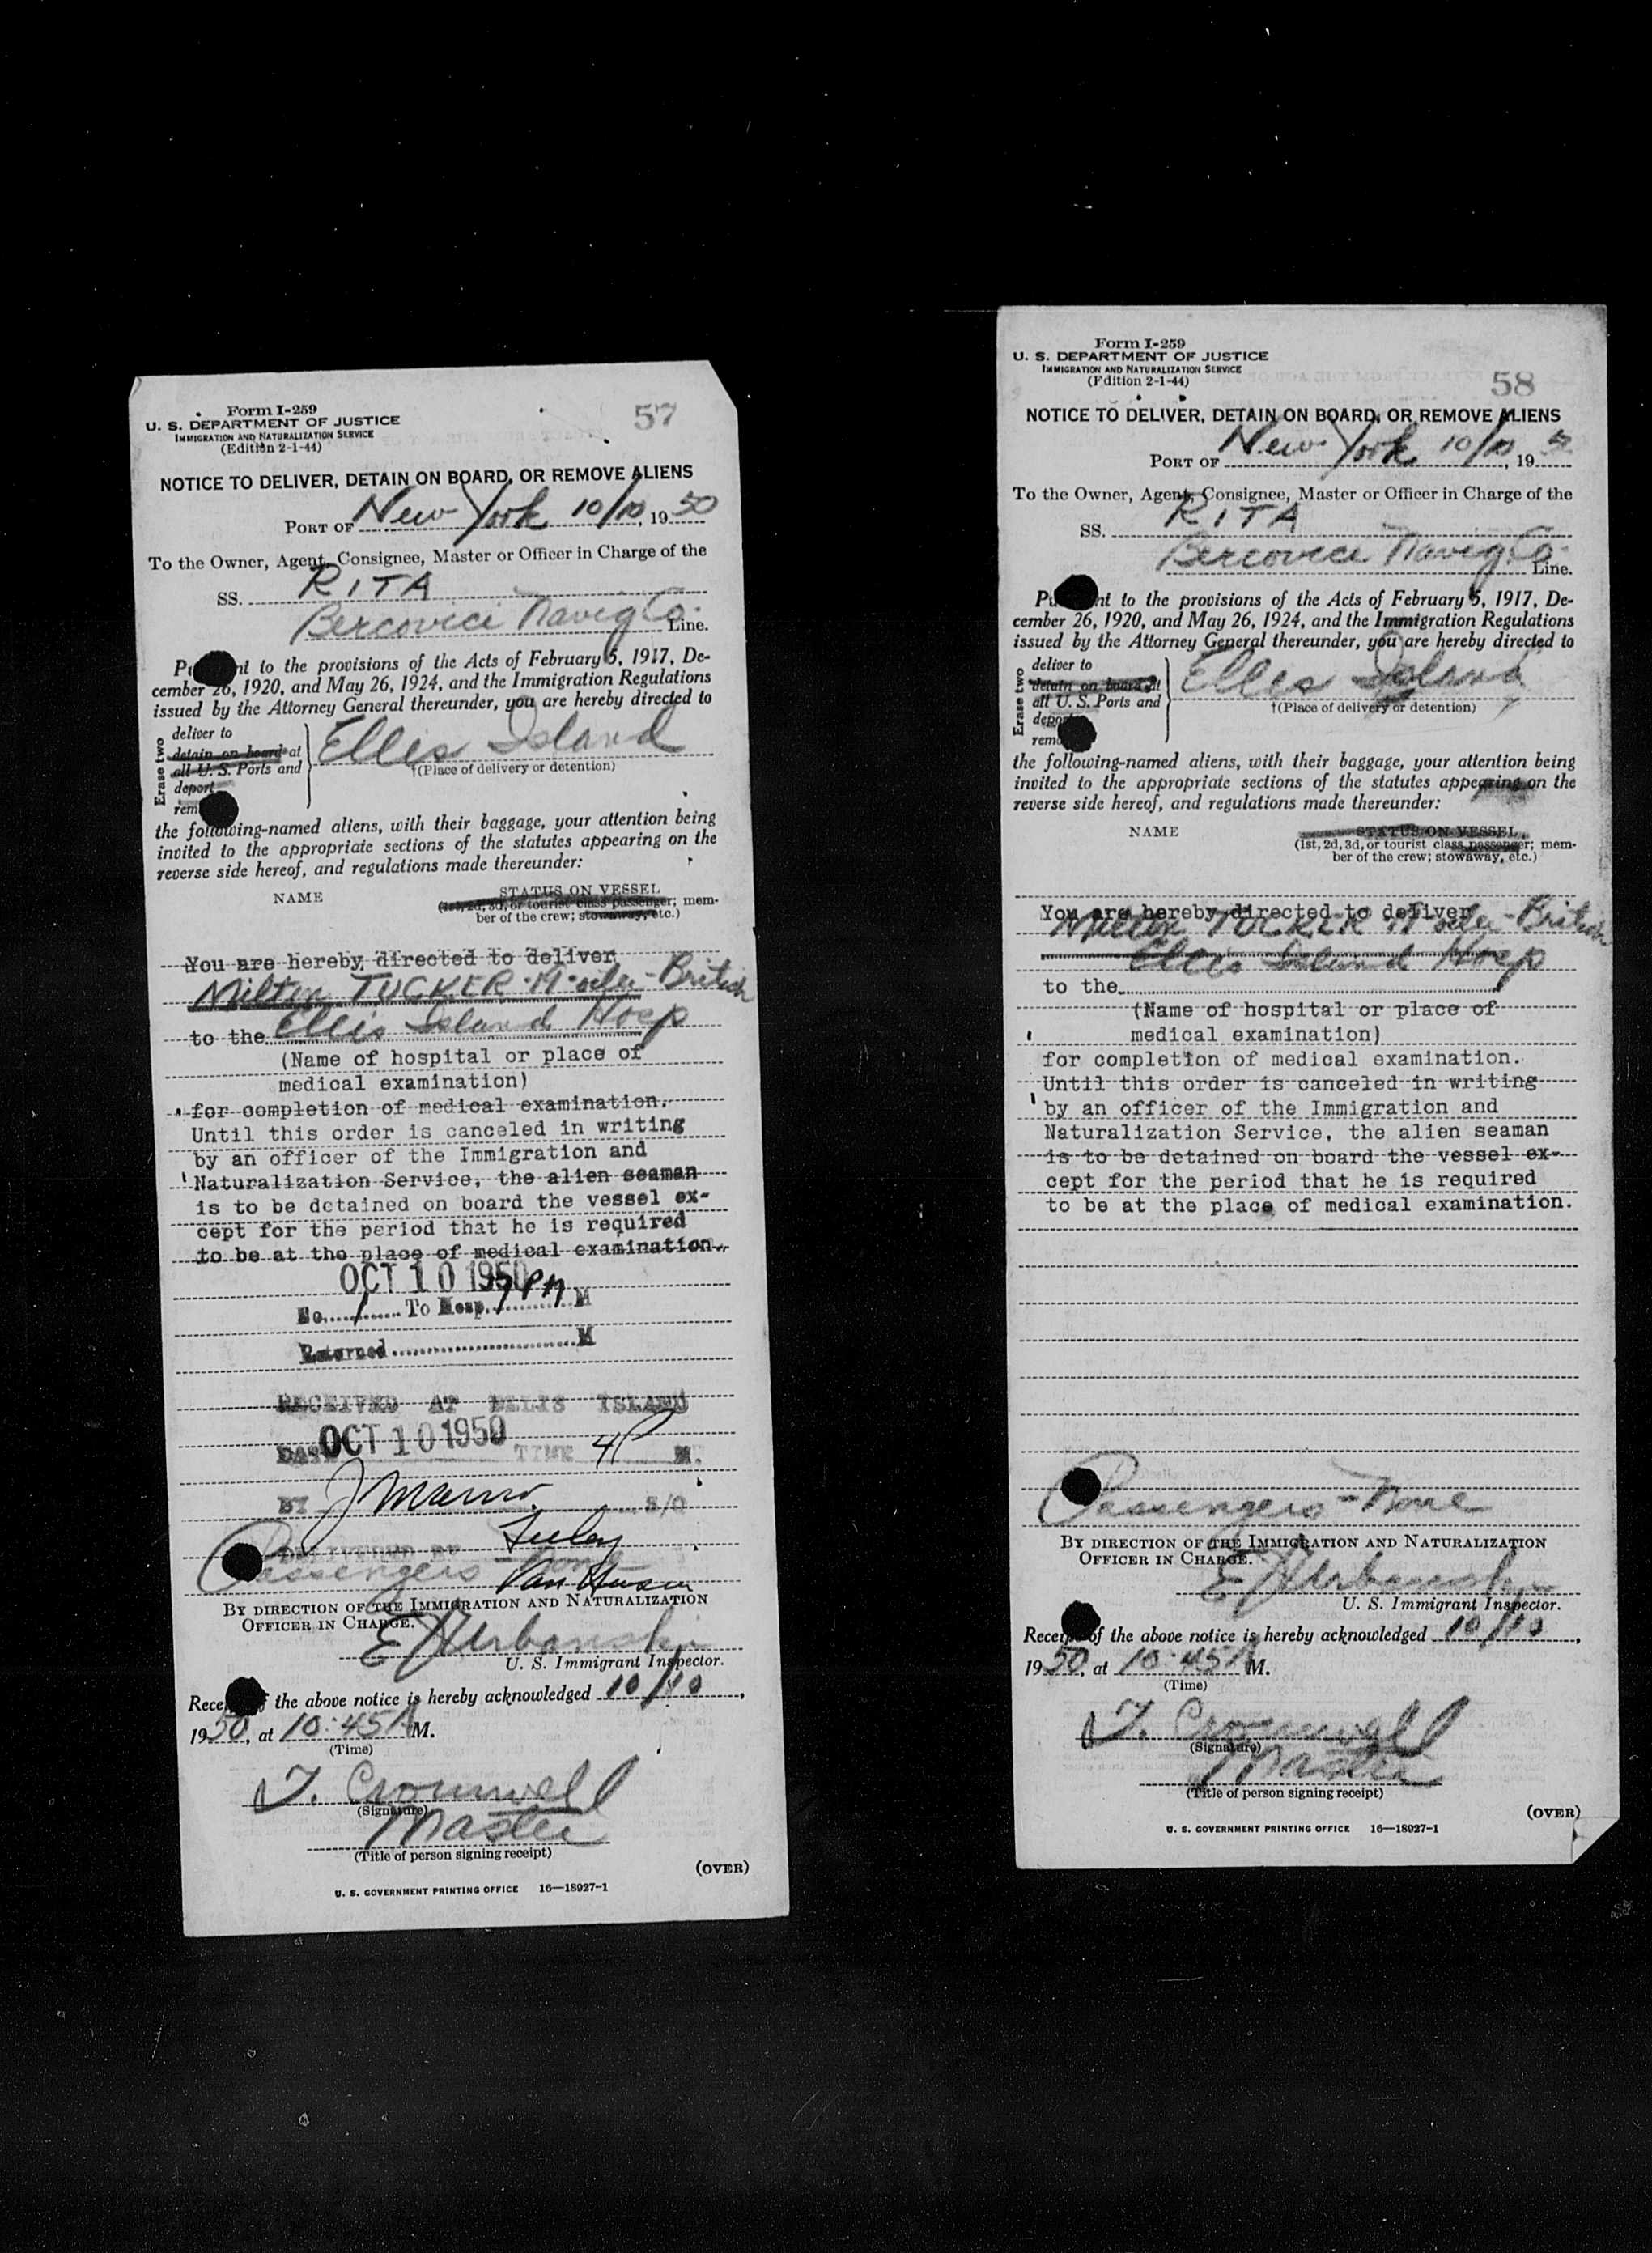 Form I-259
U. S. DEPARTMENT OF JUSTICE
IMMIGRATION AND NATURALIZATION SERVICE
(Edition 2-1-44)
57
NOTICE TO DELIVER, DETAIN ON BOARD, OR REMOVE ALIENS
PORT OF New York 10/10, 1950
To the Owner, Agent, Consignee, Master or Officer in Charge of the
SS. RITA
Bercovici Navig Co. Line.
nt to the provisions of the Acts of February 5, 1917, De-
cember 26, 1920, and May 26, 1924, and the Immigration Regulations
issued by the Attorney General thereunder, you are hereby directed to
Erase two
deliver to
detain on board at
all U. S. Ports and
deport
rem
Ellis Island
†(Place of delivery or detention)
the following-named aliens, with their baggage, your attention being
invited to the appropriate sections of the statutes appearing on the
reverse side hereof, and regulations made thereunder:
NAME
STATUS ON VESSEL
(1st, 2d, 3d, or tourist class passenger; mem-
ber of the crew; stowaway, etc.)
You are hereby directed to deliver
Milton TUCKER - British
to the Ellis Island Hosp
(Name of hospital or place of
medical examination)
for completion of medical examination.
Until this order is canceled in writing
by an officer of the Immigration and
Naturalization Service, the alien seaman
is to be detained on board the vessel ex-
cept for the period that he is required
to be at the place of medical examination.
OCT 10 1950
No. 1 To Hosp. PM M
Returned M
RECEIVED AT ELLIS ISLAND
DATE OCT 10 1950 TIME 4P M.
BY J S/O
DELIVERED BY
Passengers - None
BY DIRECTION OF THE IMMIGRATION AND NATURALIZATION
OFFICER IN CHARGE.
E Urbanski
U. S. Immigrant Inspector.
Rece the above notice is hereby acknowledged 10/10,
1950, at 10:45 A M.
(Time)
T. Cromwell
(Signature)
Master
(Title of person signing receipt)
(OVER)
U. S. GOVERNMENT PRINTING OFFICE 16—18927-1
Form I-259
U. S. DEPARTMENT OF JUSTICE
IMMIGRATION AND NATURALIZATION SERVICE
(Edition 2-1-44)
58
NOTICE TO DELIVER, DETAIN ON BOARD, OR REMOVE ALIENS
PORT OF New York 10/10, 1950
To the Owner, Agent, Consignee, Master or Officer in Charge of the
SS. RITA
Bercovici Navig. Co. Line.
nt to the provisions of the Acts of February 5, 1917, De-
cember 26, 1920, and May 26, 1924, and the Immigration Regulations
issued by the Attorney General thereunder, you are hereby directed to
Erase two
deliver to
detain on board at
all U. S. Ports and
depor
remo
Ellis Island
†(Place of delivery or detention)
the following-named aliens, with their baggage, your attention being
invited to the appropriate sections of the statutes appearing on the
reverse side hereof, and regulations made thereunder:
NAME
STATUS ON VESSEL
(1st, 2d, 3d, or tourist class passenger; mem-
ber of the crew; stowaway, etc.)
You are hereby directed to deliver
Milton TUCKER - British
Ellis Island Hosp
to the
(Name of hospital or place of
medical examination)
for completion of medical examination.
Until this order is canceled in writing
by an officer of the Immigration and
Naturalization Service, the alien seaman
is to be detained on board the vessel ex-
cept for the period that he is required
to be at the place of medical examination.
Passengers - None
BY DIRECTION OF THE IMMIGRATION AND NATURALIZATION
OFFICER IN CHARGE.
E Urbanski
U. S. Immigrant Inspector.
Receipt of the above notice is hereby acknowledged 10/10,
1950, at 10:45 A M.
(Time)
T. Cromwell
(Signature)
Master
(Title of person signing receipt)
(OVER)
U. S. GOVERNMENT PRINTING OFFICE 16—18927-1